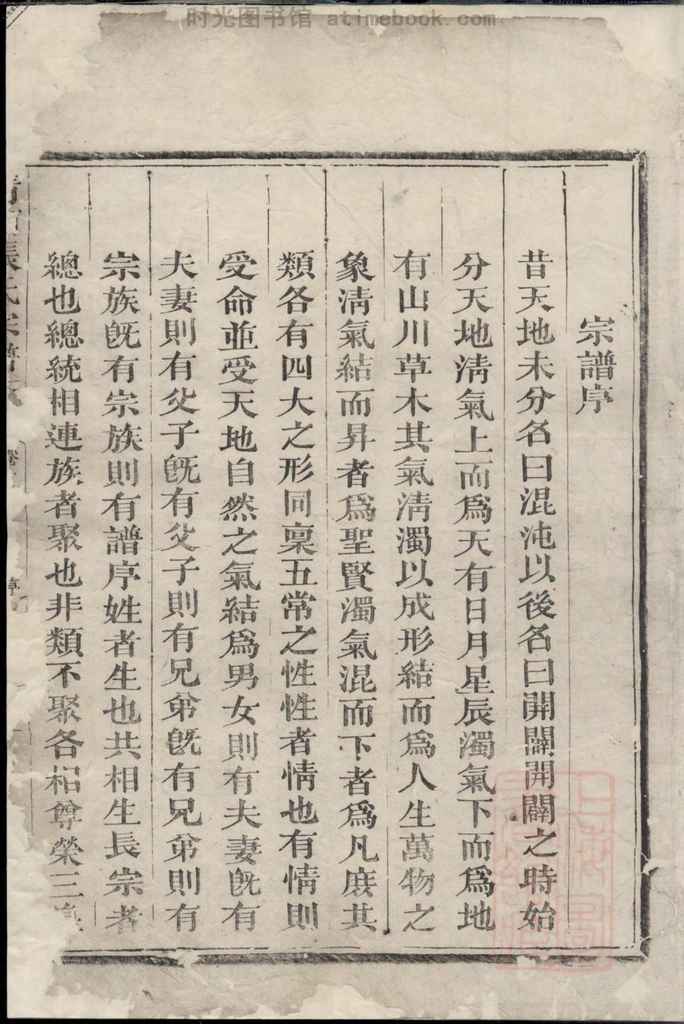 时光图书馆 atimebook.com
宗譜序
昔天地未分名曰混沌以後名曰開闢開闢之時始
分天地淸氣上而爲天有日月星辰濁氣下而爲地
有山川草木其氣淸濁以成形結而爲人生萬物之
象淸氣結而昇者爲聖賢濁氣混而下者爲凡庶其
類各有四大之形同稟五常之性性者情也有情則
受命並受天地自然之氣結爲男女則有夫妻旣有
夫妻則有父子旣有父子則有兄弟旣有兄弟則有
宗族旣有宗族則有譜序姓者生也共相生長宗者
總也總統相連族者聚也非類不聚各相尊榮三
氏宗譜